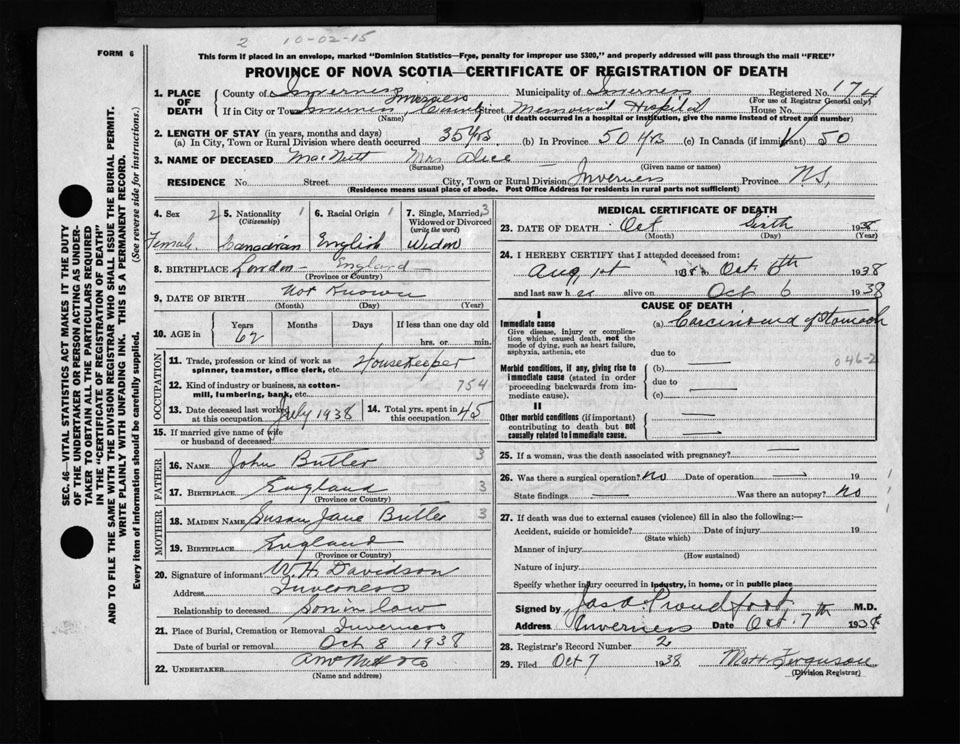 2 10-02-15
FORM 6
This form if placed in an envelope, marked "Dominion Statistics—Free, penalty for improper use $300," and properly addressed will pass through the mail "FREE"
PROVINCE OF NOVA SCOTIA—CERTIFICATE OF REGISTRATION OF DEATH
SEC. 46—VITAL STATISTICS ACT MAKES IT THE DUTY
OF THE UNDERTAKER OR PERSON ACTING AS UNDER-
TAKER TO OBTAIN ALL THE PARTICULARS REQUIRED
IN THE "CERTIFICATE OF REGISTRATION OF DEATH"
AND TO FILE THE SAME WITH THE DIVISION REGISTRAR WHO SHALL ISSUE THE BURIAL PERMIT.
WRITE PLAINLY WITH UNFADING INK. THIS IS A PERMANENT RECORD.
Every item of information should be carefully supplied. (See reverse side for instructions.)
1. PLACE OF DEATH County of Inverness Municipality of Inverness Registered No. 174
(For use of Registrar General only)
If in City or Town Inverness, Inverness County Street Memorial Hospital House No.
(Name) (If death occurred in a hospital or institution, give the name instead of street and number)
2. LENGTH OF STAY (in years, months and days)
(a) In City, Town or Rural Division where death occurred 35 yrs (b) In Province 50 yrs (c) In Canada (if immigrant) 50
3. NAME OF DECEASED MacNutt Mrs. Alice
(Surname) (Given name or names)
RESIDENCE No. Street City, Town or Rural Division Inverness Province N.S.
(Residence means usual place of abode. Post Office Address for residents in rural parts not sufficient)
4. Sex 2 5. Nationality 1 6. Racial Origin 1 7. Single, Married, 3
(Citizenship) Widowed or Divorced
(write the word)
Female. Canadian English Widow
8. BIRTHPLACE London — England
(Province or Country)
9. DATE OF BIRTH Not Known
(Month) (Day) (Year)
10. AGE in Years Months Days If less than one day old
62 hrs. or min.
OCCUPATION
11. Trade, profession or kind of work as Housekeeper
spinner, teamster, office clerk, etc.
12. Kind of industry or business, as cotton- 754
mill, lumbering, bank, etc.
13. Date deceased last worked at this occupation July 1938 14. Total yrs. spent in this occupation 45
15. If married give name of wife
or husband of deceased
FATHER
16. NAME John Butler 3
17. BIRTHPLACE England 3
(Province or Country)
MOTHER
18. MAIDEN NAME Susan Jane Butler 3
19. BIRTHPLACE England
(Province or Country)
20. Signature of informant W. H. Davidson
Address Inverness
Relationship to deceased Son in law
21. Place of Burial, Cremation or Removal Inverness
Date of burial or removal Oct 8 1938
22. UNDERTAKER
(Name and address)
MEDICAL CERTIFICATE OF DEATH
23. DATE OF DEATH Oct Sixth 1938
(Month) (Day) (Year)
24. I HEREBY CERTIFY that I attended deceased from:
Aug 1st 1938 to Oct 6th 1938
and last saw her alive on Oct 6 1938
CAUSE OF DEATH
I
Immediate cause (a) Carcinoma of Stomach
Give disease, injury or complica-
tion which caused death, not the
mode of dying, such as heart failure,
asphyxia, asthenia, etc due to 046-2
Morbid conditions, if any, giving rise to (b)
immediate cause (stated in order due to
proceeding backwards from im-
mediate cause). (c)
II
Other morbid conditions (if important)
contributing to death but not
causally related to immediate cause.
25. If a woman, was the death associated with pregnancy?
26. Was there a surgical operation? no Date of operation 19
State findings Was there an autopsy? no
27. If death was due to external causes (violence) fill in also the following:—
Accident, suicide or homicide? Date of injury 19
(State which)
Manner of injury
(How sustained)
Nature of injury
Specify whether injury occurred in industry, in home, or in public place
Signed by Jas. A. Proudfoot, M.D.
Address Inverness Date Oct. 7th 1938
28. Registrar's Record Number 2
29. Filed Oct 7 1938 Ferguson
(Division Registrar)